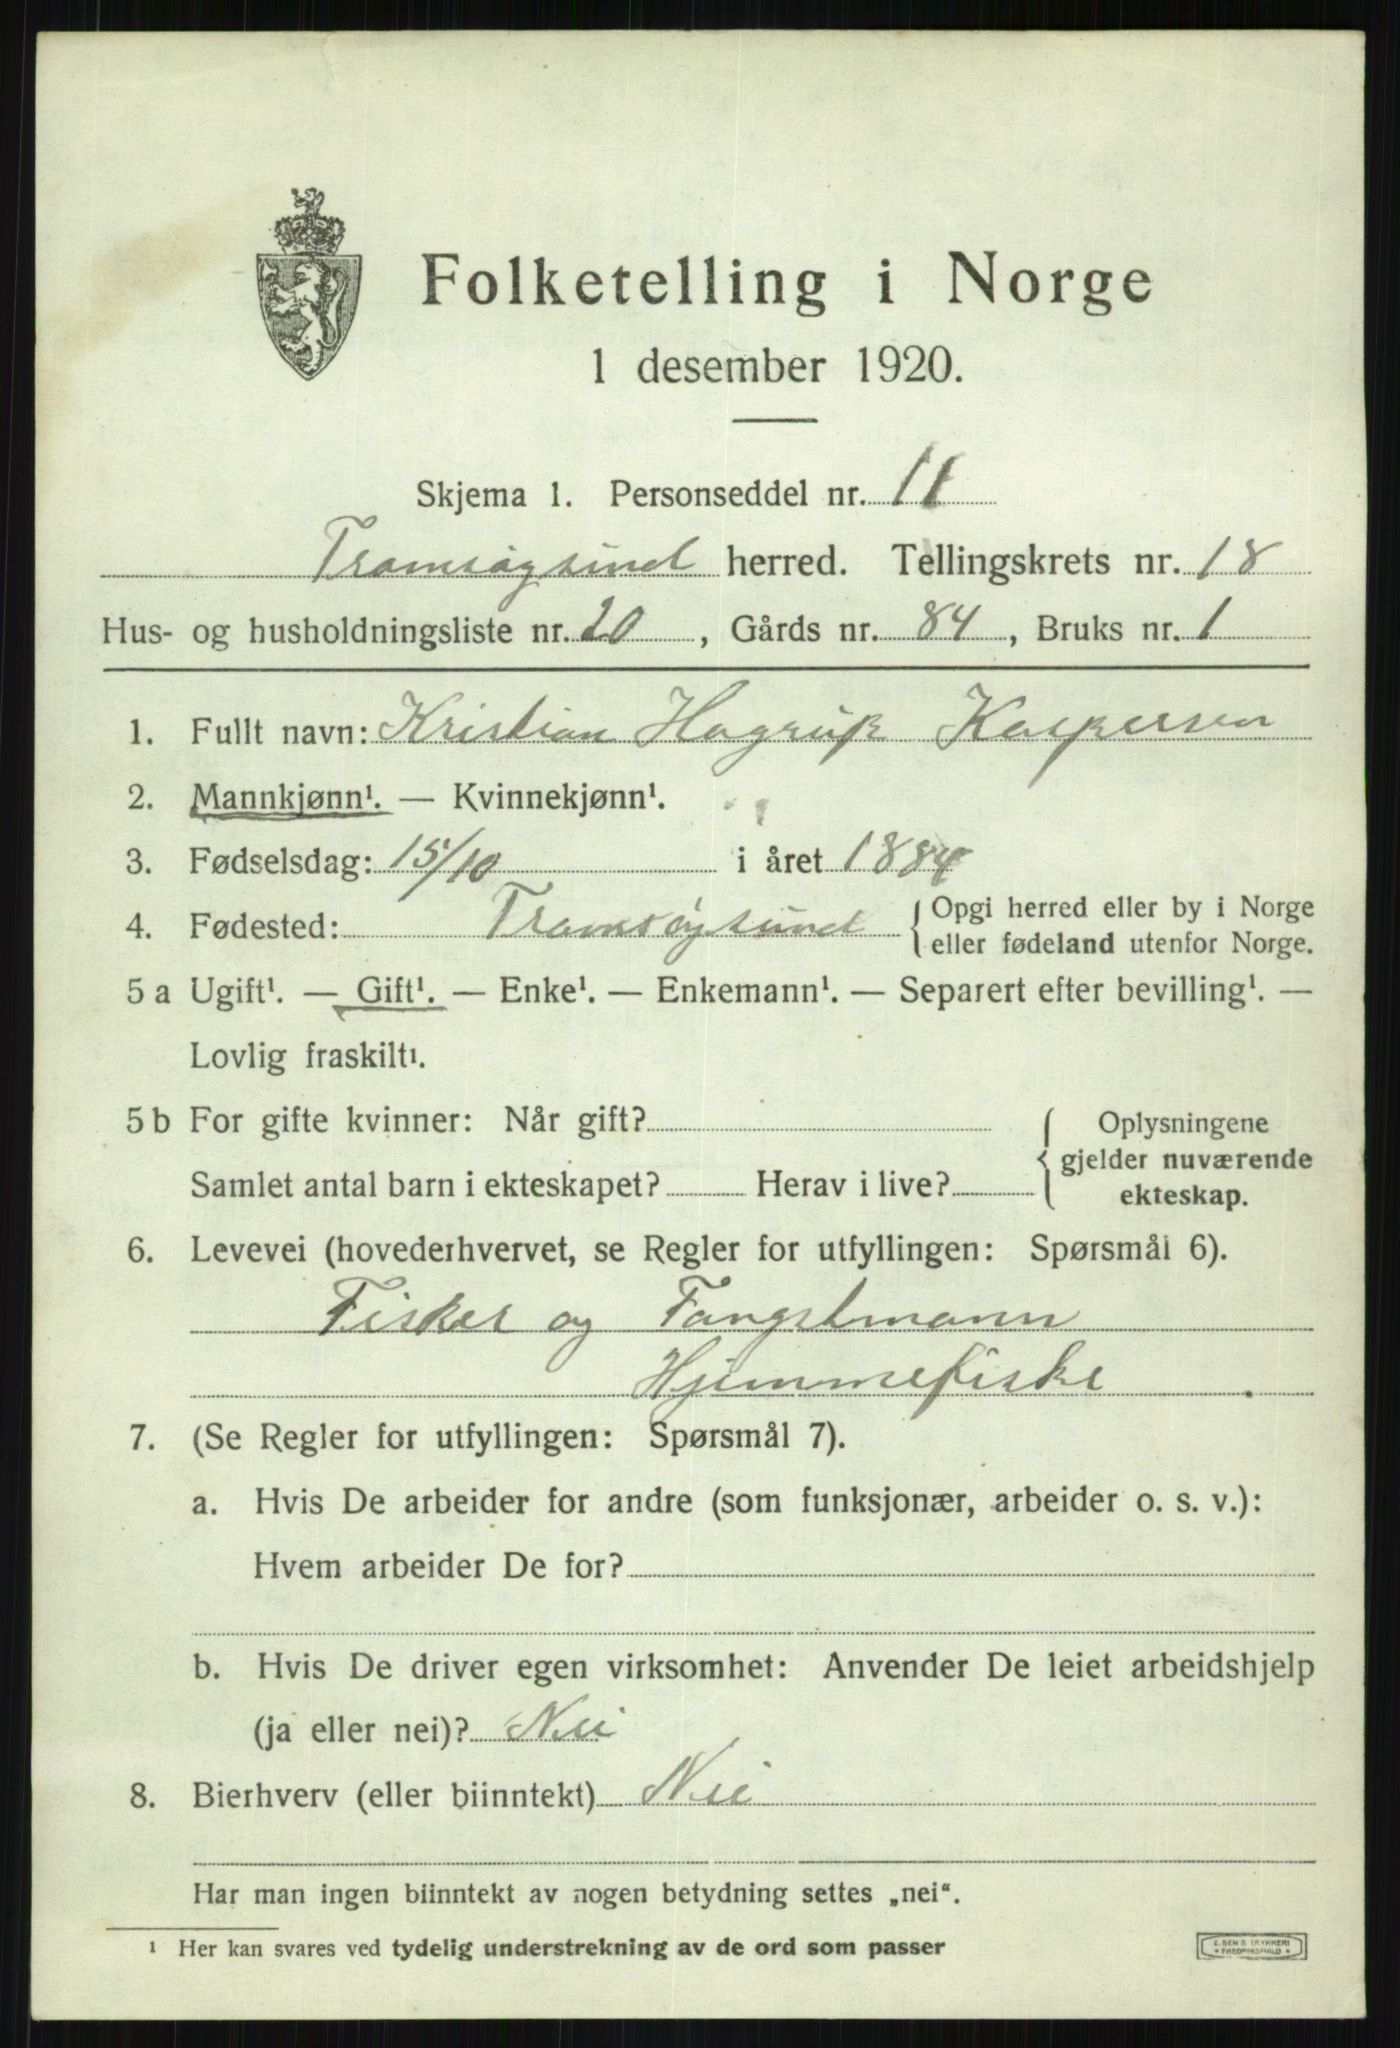 Folketelling i Norge
1 desember 1920.
Skjema 1. Personseddel nr. 11
Tromsøysund herred. Tellingskrets nr. 18
Hus- og husholdningsliste nr. 20, Gårds nr. 84, Bruks nr. 1
1. Fullt navn: Kristian Hagrup Kaspersen
2. Mannkjønn¹. — Kvinnekjønn¹.
3. Fødselsdag: 15/10 i året 1884
4. Fødested: Tromsøysund { Opgi herred eller by i Norge
eller fødeland utenfor Norge.
5 a Ugift¹. — Gift¹. — Enke¹. — Enkemann¹. — Separert efter bevilling¹. —
Lovlig fraskilt¹.
5 b For gifte kvinner: Når gift?
Samlet antal barn i ekteskapet? Herav i live?
{ Oplysningene
gjelder nuværende
ekteskap.
6. Levevei (hovederhvervet, se Regler for utfyllingen: Spørsmål 6).
Fisker og Fangstmann
Hjemmefiske
7. (Se Regler for utfyllingen: Spørsmål 7).
a. Hvis De arbeider for andre (som funksjonær, arbeider o. s. v.):
Hvem arbeider De for?
b. Hvis De driver egen virksomhet: Anvender De leiet arbeidshjelp
(ja eller nei)? Nei
8. Bierhverv (eller biinntekt) Nei
Har man ingen biinntekt av nogen betydning settes „nei“.
¹ Her kan svares ved tydelig understrekning av de ord som passer